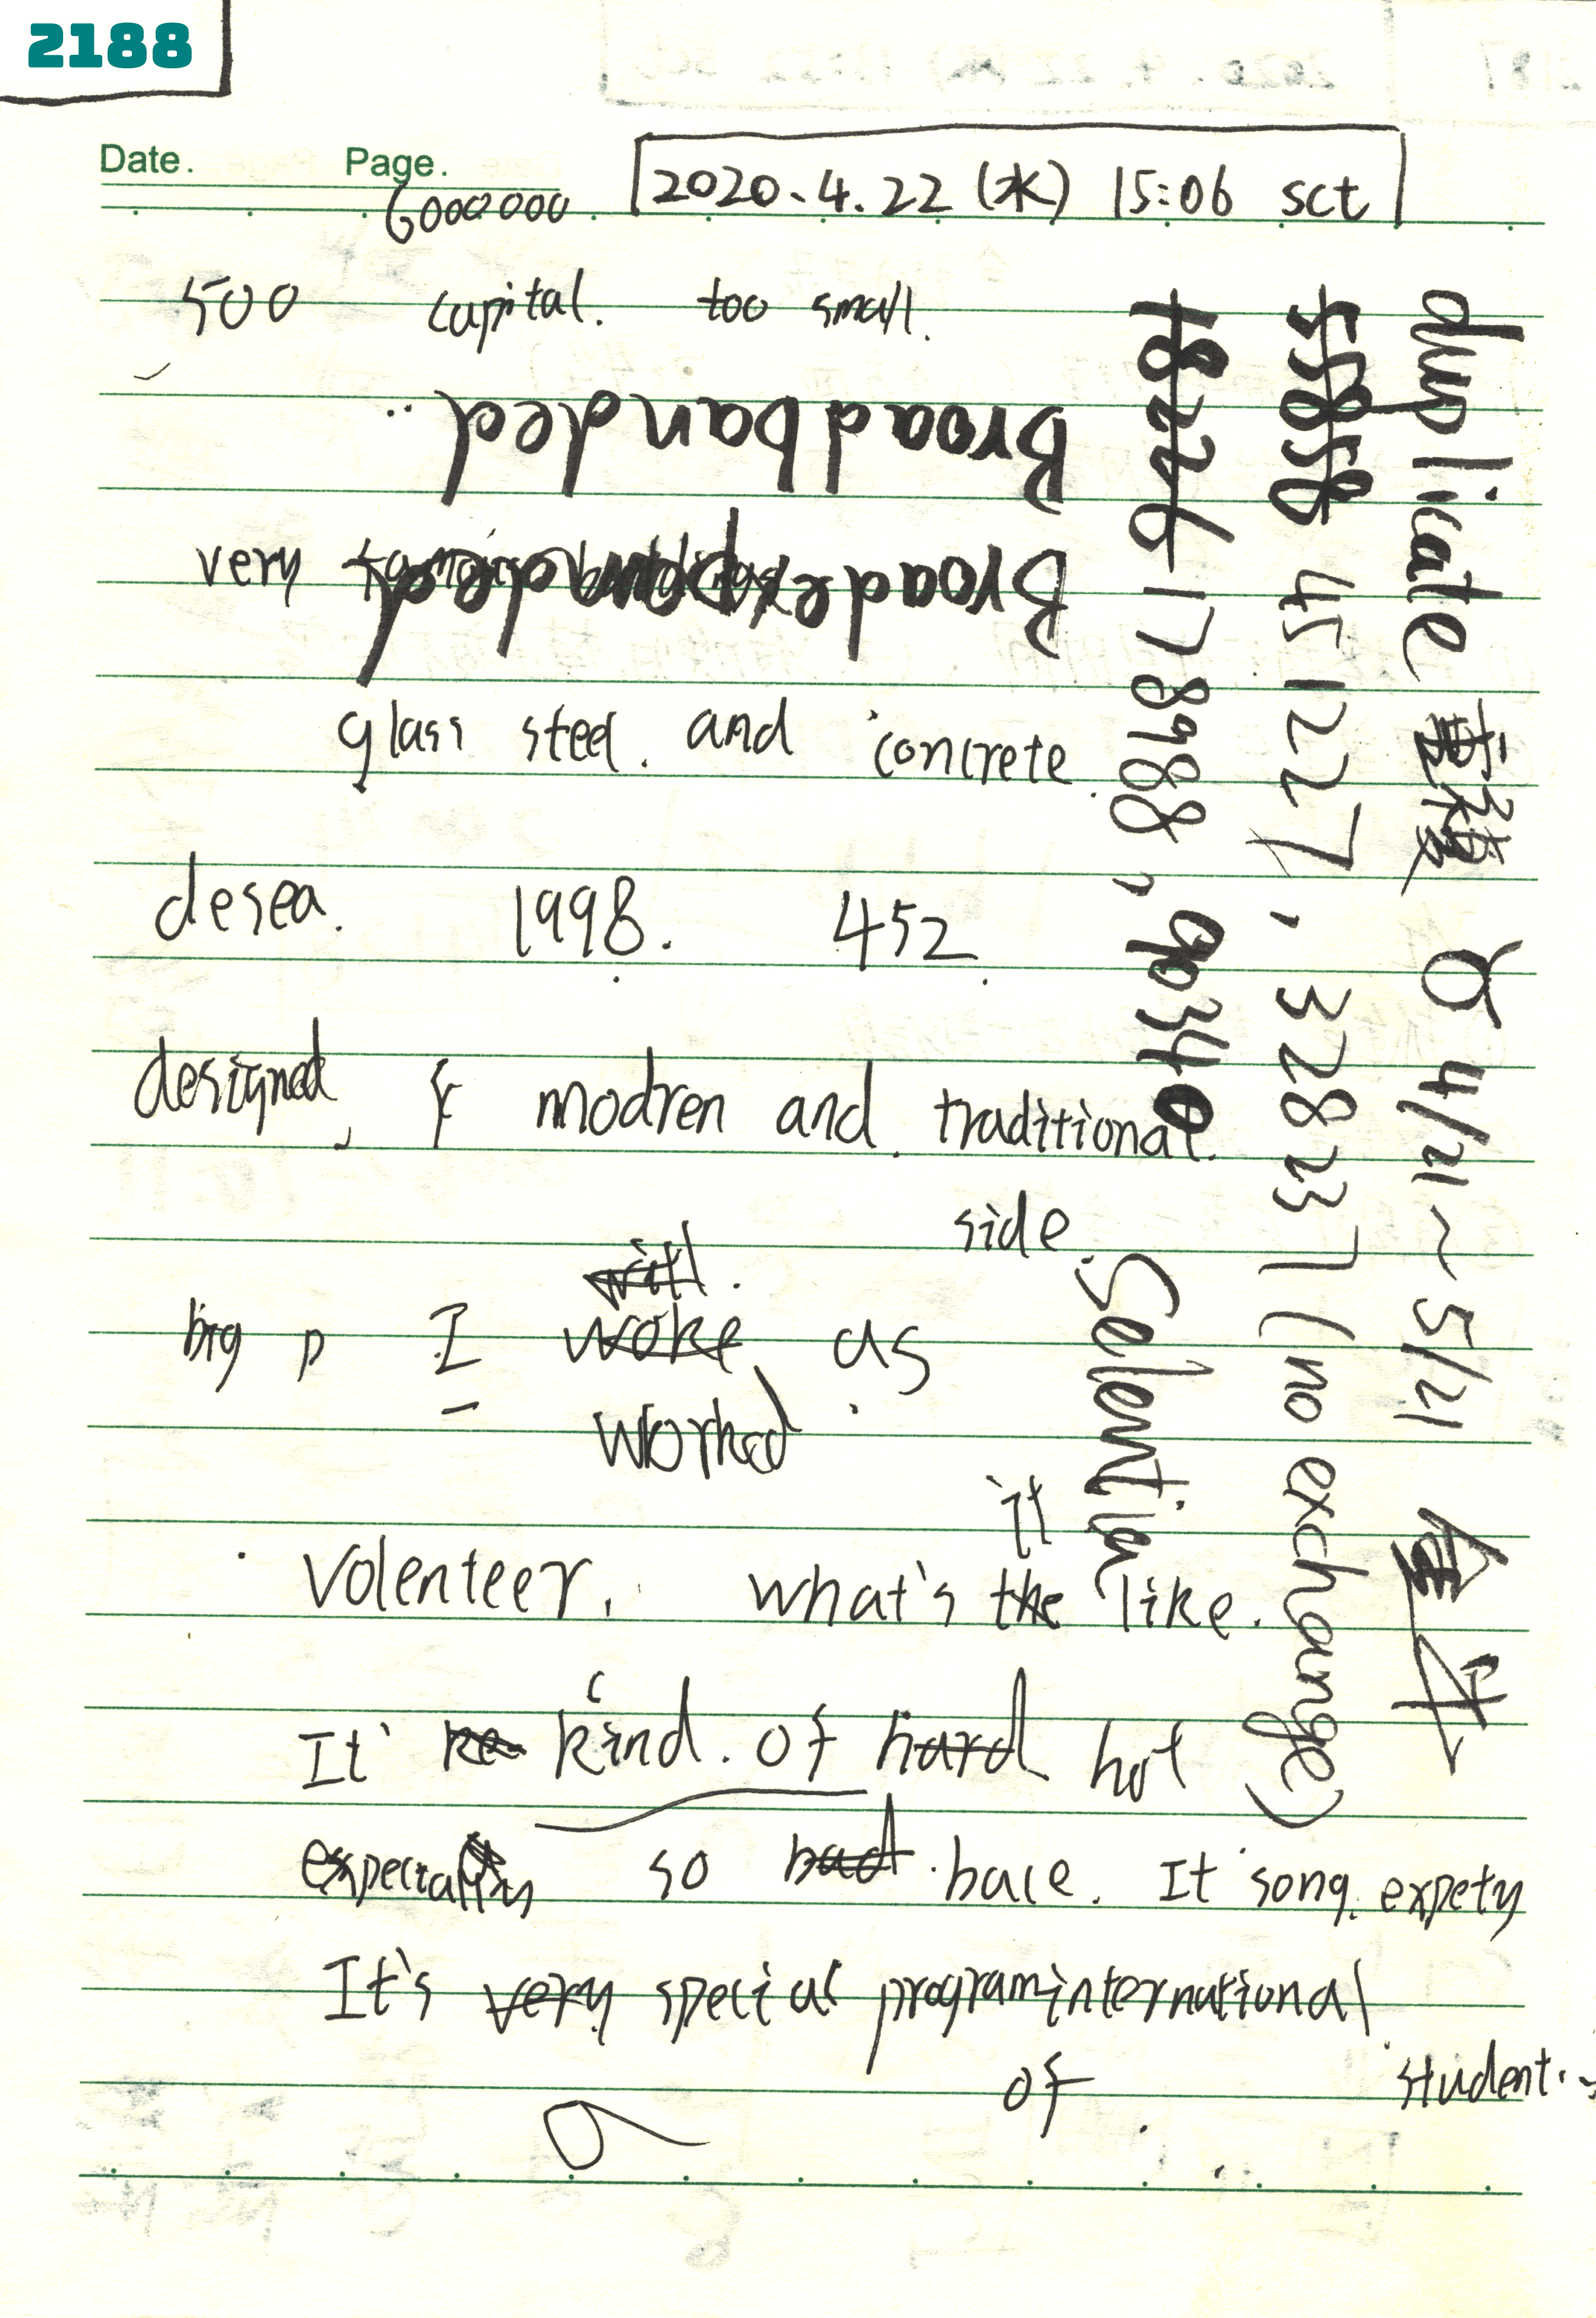 2188
Date. Page.
6000000
2020.4.22 (水) 15:06 sct
500 capital. too small.
Broadbanded
very
Broadexpanded
glass steel. and concrete.
desea. 1998. 452.
designed, & modren and traditional.
side.
will.
big p I woke as
worked
it
Volenteer. what's the like.
It' ke kind. of hard hot
especially so bad. bace. It song. expety
It's very special program international
of student.
duplicate 重複 ♉ 4/21~5/21 金牛
5858 45 1227, 328237 (no exchange)
18226 178988, 90340
Selentia